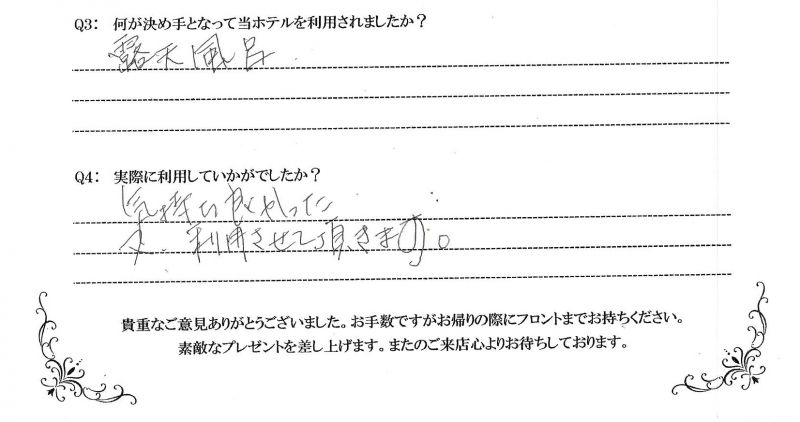 Q3: 何が決め手となって当ホテルを利用されましたか?
露天風呂
Q4: 実際に利用していかがでしたか?
気持ち良かった
又、利用させて頂きます。
貴重なご意見ありがとうございました。お手数ですがお帰りの際にフロントまでお持ちください。
素敵なプレゼントを差し上げます。またのご来店心よりお待ちしております。